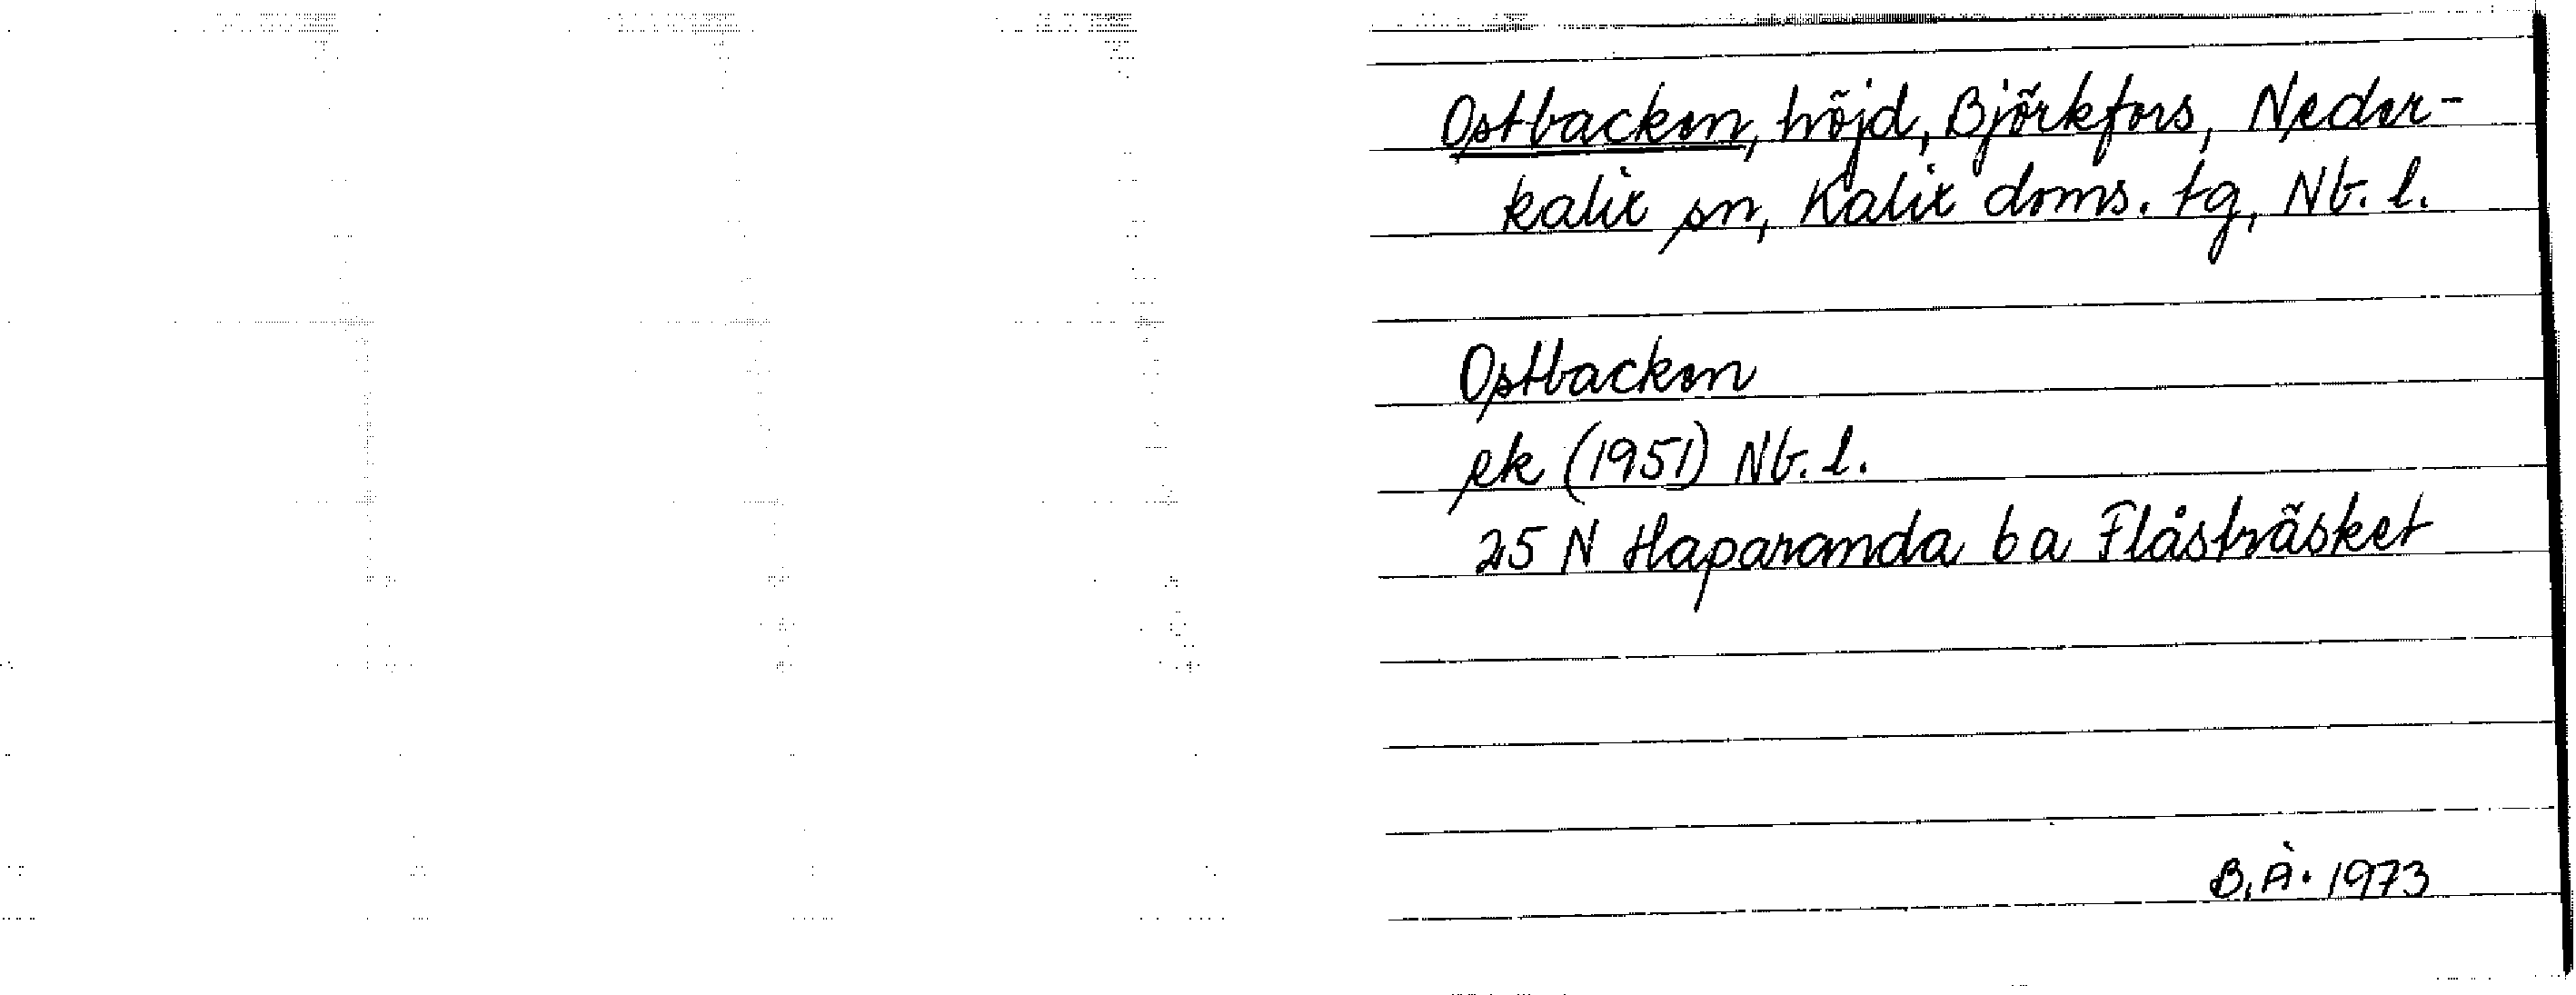 Ostbacken, höjd, Björkfors, Neder-
kalix sn, Kalix doms. tg, Nb. l.
Ostbacken
ek (1951) Nb. l.
25 N Haparanda 6 a Flåsträsket
B. Å. 1973